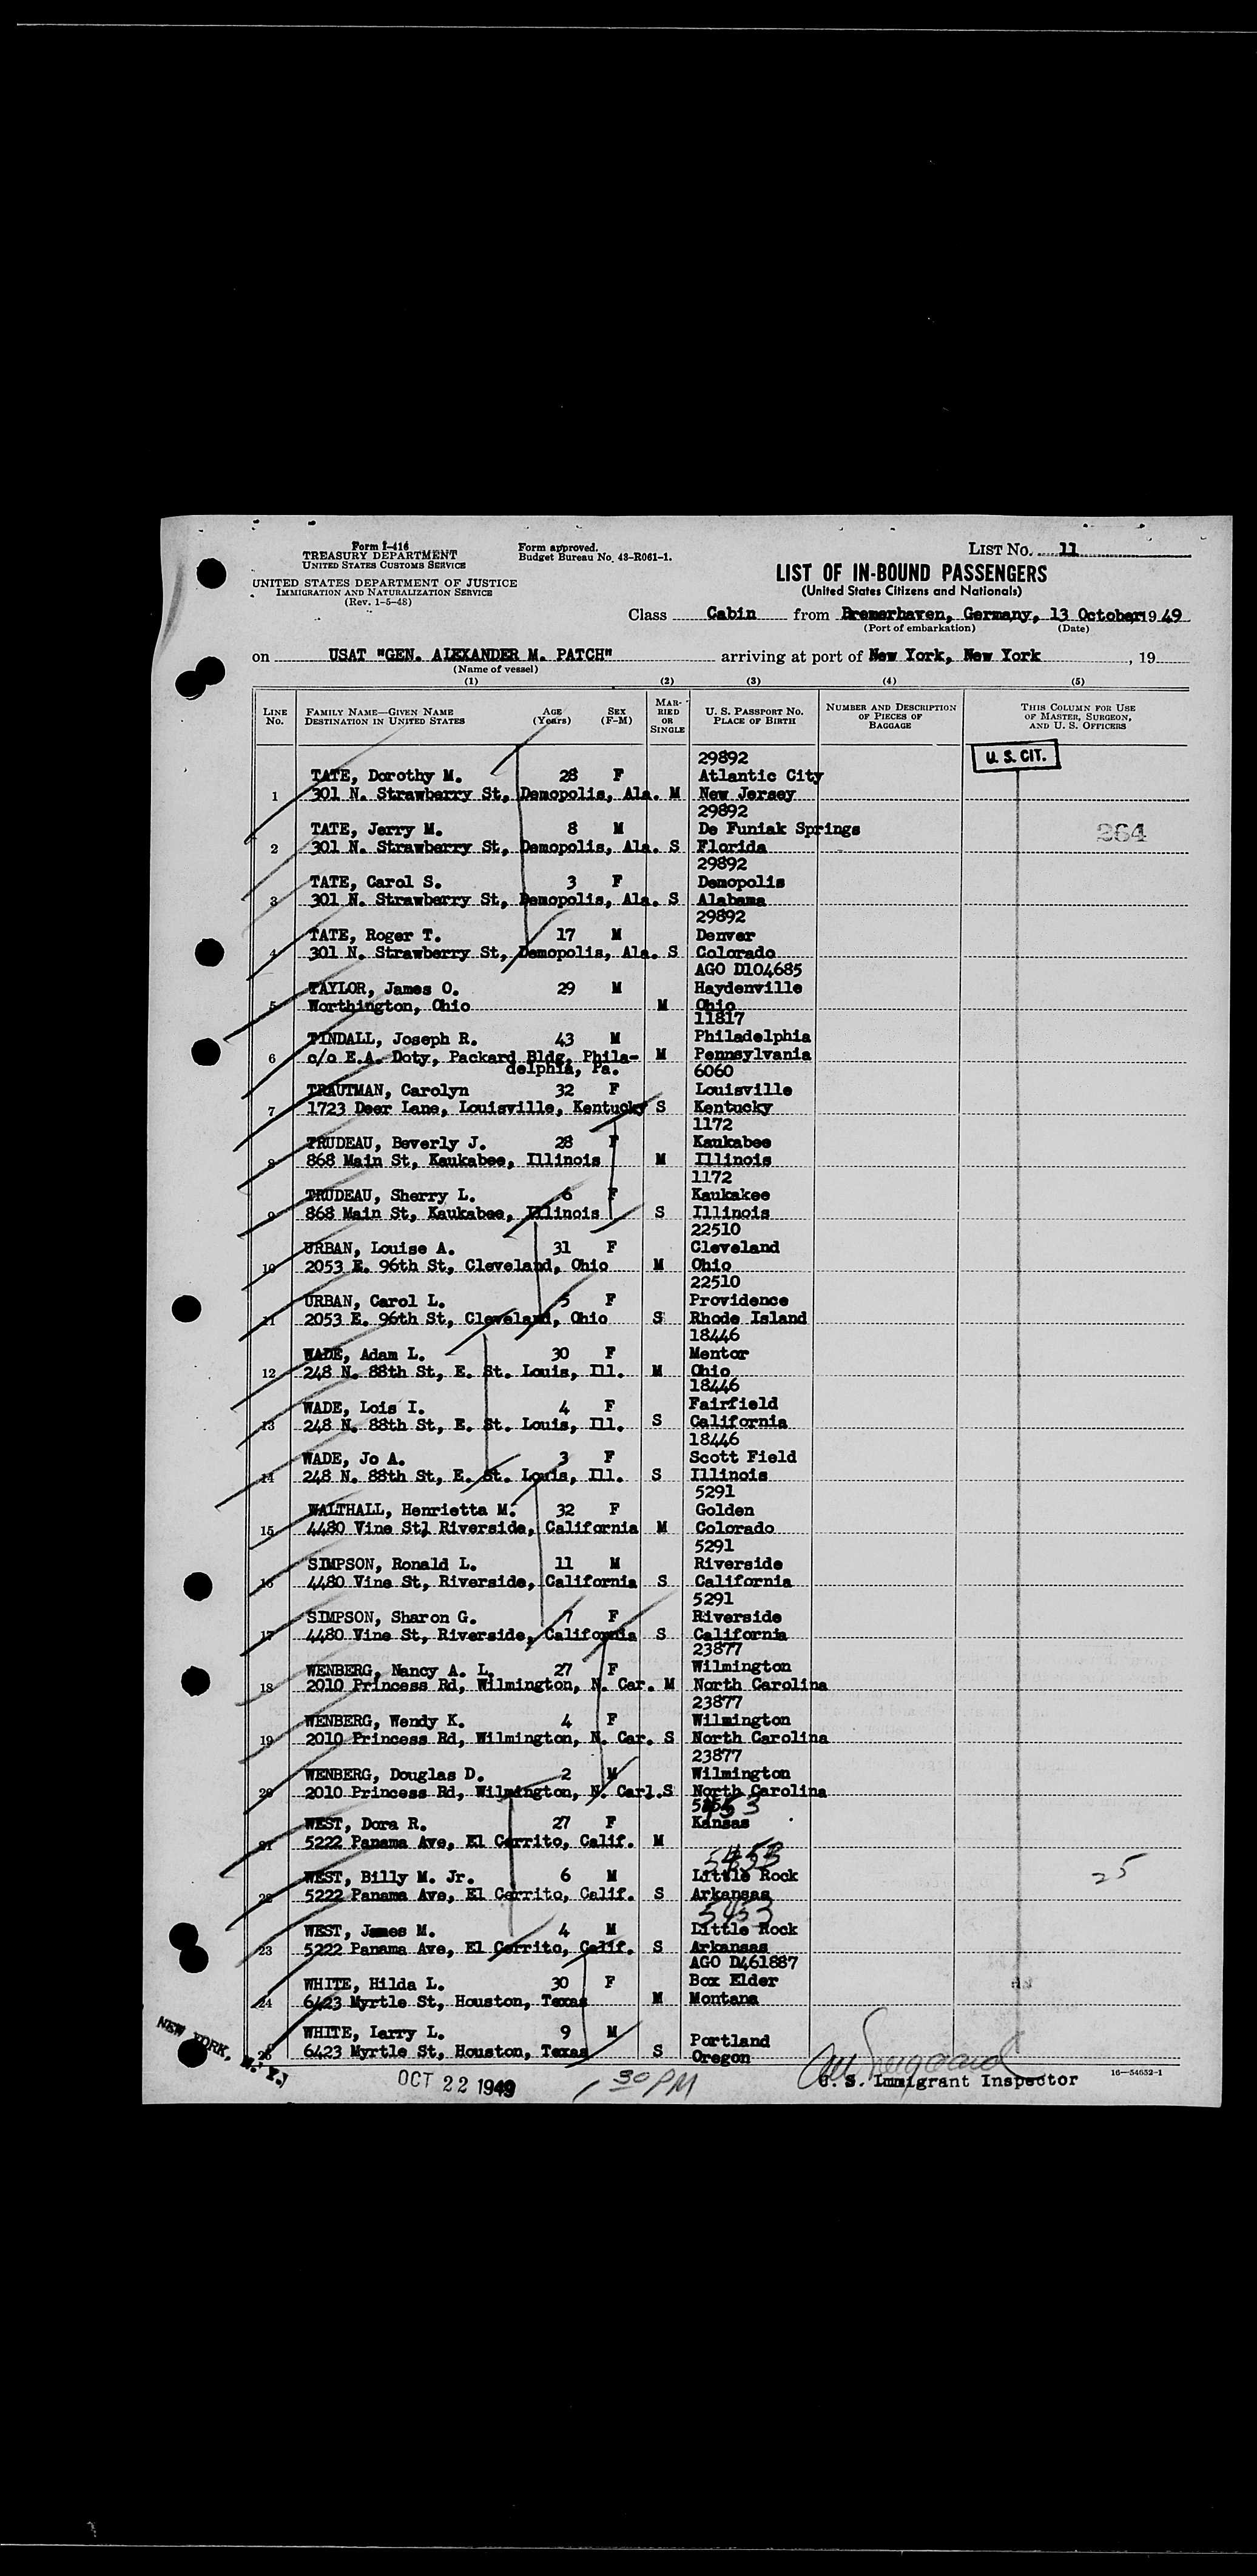 Form I-416
TREASURY DEPARTMENT
UNITED STATES CUSTOMS SERVICE
UNITED STATES DEPARTMENT OF JUSTICE
IMMIGRATION AND NATURALIZATION SERVICE
(Rev. 1-5-48)
Form approved.
Budget Bureau No. 43-R061-1.
LIST No. 11
LIST OF IN-BOUND PASSENGERS
(United States Citizens and Nationals)
Class Cabin from Bremerhaven, Germany, 13 October, 1949
(Port of embarkation) (Date)
on USAT "GEN. ALEXANDER M. PATCH" arriving at port of New York, New York, 19
(Name of vessel)
(1) (2) (3) (4) (5)
LINE No. FAMILY NAME—GIVEN NAME DESTINATION IN UNITED STATES AGE (Years) SEX (F-M) MARRIED OR SINGLE U. S. PASSPORT No. PLACE OF BIRTH NUMBER AND DESCRIPTION OF PIECES OF BAGGAGE THIS COLUMN FOR USE OF MASTER, SURGEON, AND U. S. OFFICERS
U. S. CIT.
29892
TATE, Dorothy M. 28 F Atlantic City
1 301 N. Strawberry St, Demopolis, Ala. M New Jersey
29892
TATE, Jerry M. 8 M De Funiak Springs 264
2 301 N. Strawberry St, Demopolis, Ala. S Florida
29892
TATE, Carol S. 3 F Demopolis
3 301 N. Strawberry St, Demopolis, Ala. S Alabama
29892
TATE, Roger T. 17 M Denver
4 301 N. Strawberry St, Demopolis, Ala. S Colorado
AGO D104685
TAYLOR, James O. 29 M Haydenville
5 Worthington, Ohio M Ohio
11817
TINDALL, Joseph R. 43 M Philadelphia
6 c/o E.A. Doty, Packard Bldg, Phila- M Pennsylvania
delphia, Pa. 6060
TRAUTMAN, Carolyn 32 F Louisville
7 1723 Deer Lane, Louisville, Kentucky S Kentucky
1172
TRUDEAU, Beverly J. 28 F Kaukabee
8 868 Main St, Kaukabee, Illinois M Illinois
1172
TRUDEAU, Sherry L. 6 F Kaukakee
9 868 Main St, Kaukabee, Illinois S Illinois
22510
URBAN, Louise A. 31 F Cleveland
10 2053 E. 96th St, Cleveland, Ohio M Ohio
22510
URBAN, Carol L. 5 F Providence
11 2053 E. 96th St, Cleveland, Ohio S Rhode Island
18446
WADE, Adam L. 30 F Mentor
12 248 N. 88th St, E. St. Louis, Ill. M Ohio
18446
WADE, Lois I. 4 F Fairfield
13 248 N. 88th St, E. St. Louis, Ill. S California
18446
WADE, Jo A. 3 F Scott Field
14 248 N. 88th St, E. St. Louis, Ill. S Illinois
5291
WALTHALL, Henrietta M. 32 F Golden
15 4480 Vine St, Riverside, California M Colorado
5291
SIMPSON, Ronald L. 11 M Riverside
16 4480 Vine St, Riverside, California S California
5291
SIMPSON, Sharon G. 7 F Riverside
17 4480 Vine St, Riverside, California S California
23877
WENBERG, Nancy A. L. 27 F Wilmington
18 2010 Princess Rd, Wilmington, N. Car. M North Carolina
23877
WENBERG, Wendy K. 4 F Wilmington
19 2010 Princess Rd, Wilmington, N. Car. S North Carolina
23877
WENBERG, Douglas D. 2 M Wilmington
20 2010 Princess Rd, Wilmington, N. Carl. S North Carolina
WEST, Dora R. 27 F Kansas
21 5222 Panama Ave, El Cerrito, Calif. M
5453
WEST, Billy M. Jr. 6 M Little Rock 25
22 5222 Panama Ave, El Cerrito, Calif. S Arkansas
5453
WEST, James M. 4 M Little Rock
23 5222 Panama Ave, El Cerrito, Calif. S Arkansas
AGO D461887
WHITE, Hilda L. 30 F Box Elder
24 6423 Myrtle St, Houston, Texas M Montana
WHITE, Larry L. 9 M Portland
25 6423 Myrtle St, Houston, Texas S Oregon
NEW YORK, N. Y.
OCT 22 1949 1 30 PM
U. S. Immigrant Inspector 16—54652-1